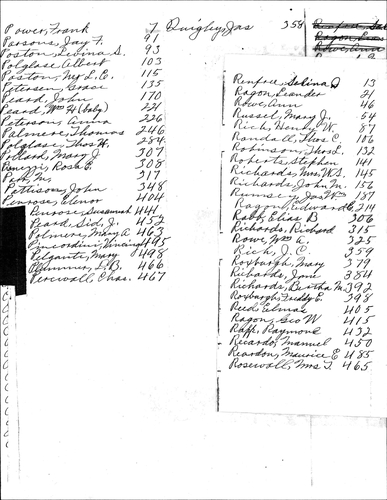 Power, Frank 7
Parsons, Jay F. 91
Poston, Levina S. 93
Polglase, Albert 103
Paston, Mrs L.E. 115
Petersen, Grace 135
Peard, John 170
Peard, Wm H (baby) 221
Petersons, Anna 226
Palmer, Thomas 246
Polglase, Thos H. 284
Pollard, Mary J 307
Rosa E. 308
317
Pettison, John 348
Penrose, Elenor 404
Penrose, Susannah 441
Peard, Sid, J. 452
Palmer, Mary A 463
495
Pelgante, Mary 498
Plummer, L.B. 466
Percivall, Chas. 467
Quigley, Jas 358
Renfree, Selina J 13
Ragon, Leander 21
Rowe, Ann 46
Russel, Mary J. 54
Rich, Henry W. 87
Randall, Thos C. 106
Robinson, Thos L. 132
Roberts, Stephen 141
Richards, Mrs W.S. 145
Richards, John M. 156
Rumsey, Jas Wm 187
Ragon, Edward C. 214
Rabb, Elias B 306
Richards, Richard 315
Rowe, Wm A. 325
Rich, J.C. 359
Roxburgh, Mary 379
Richards, Jane 384
Richards, Bertha M. 392
Roxburgh, Freddy E. 398
Reid, Elmas 405
Ragon, Geo W 415
Raff, Raymond 432
Ricardo, Manuel 450
Reardon, Maurice E 485
Rosewall, Mrs T. 465